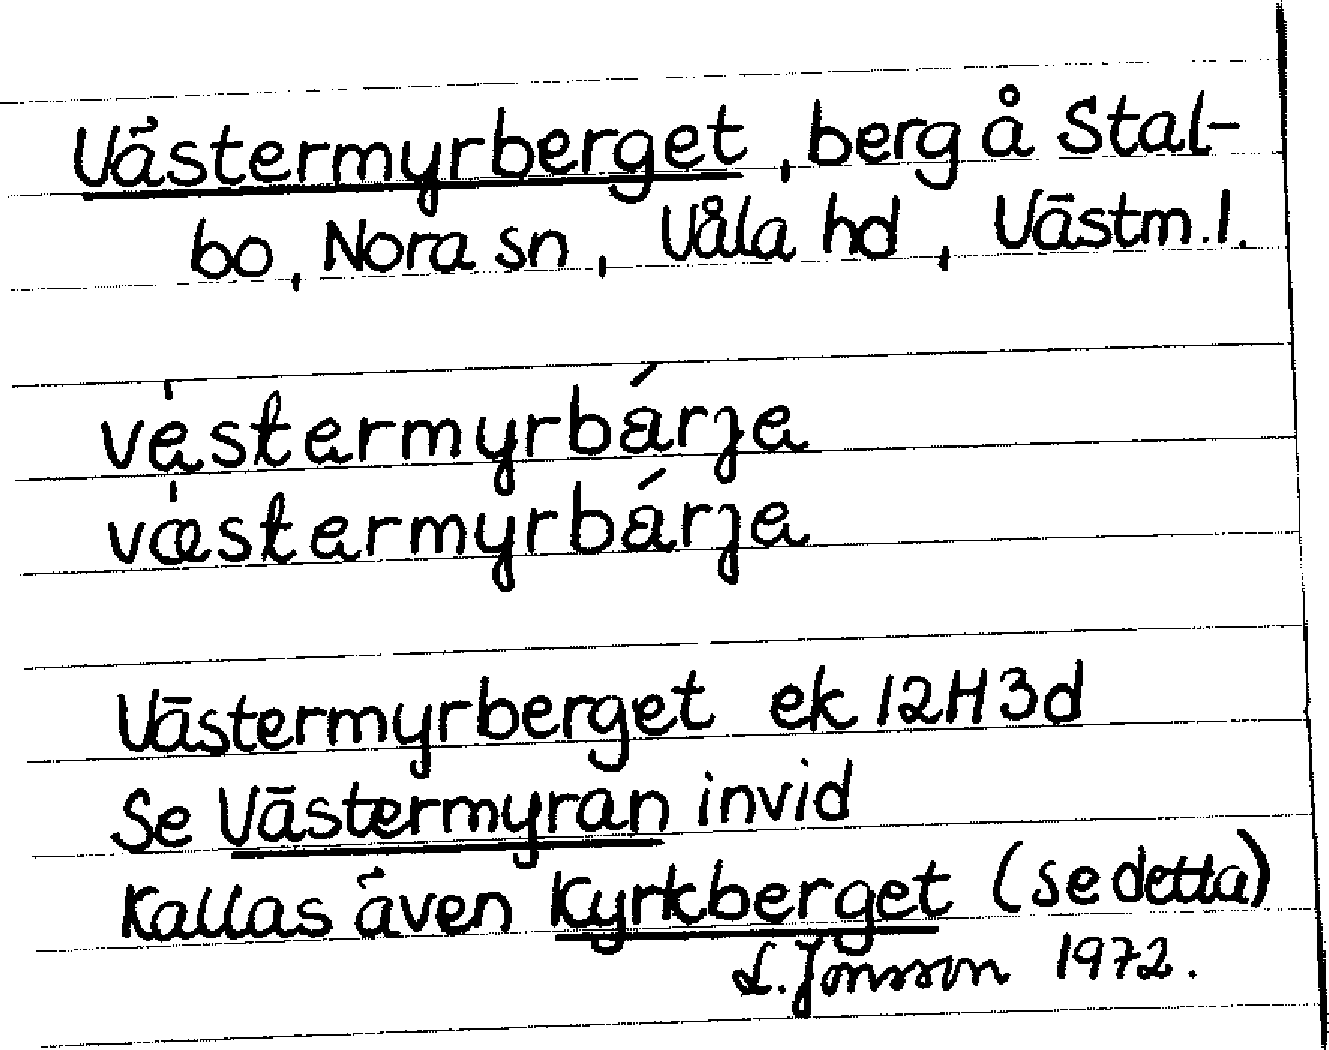 Västermyrberget, berg å Stal-
bo, Nora sn, Våla hd, Västm.l.
vèstermyrbárja
væ̀stermyrbárja
Västermyrberget ek 12H3d
Se Västermyran invid
Kallas även Kyrkberget (se detta)
L. Jonsson 1972.